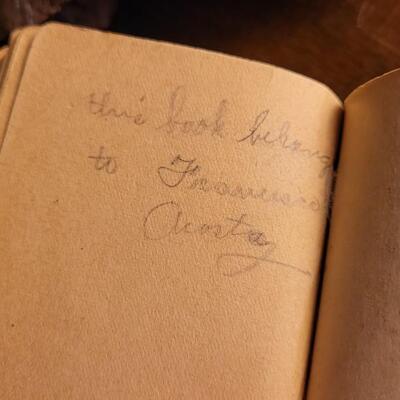 this book belongs
to Francisco
Acosta